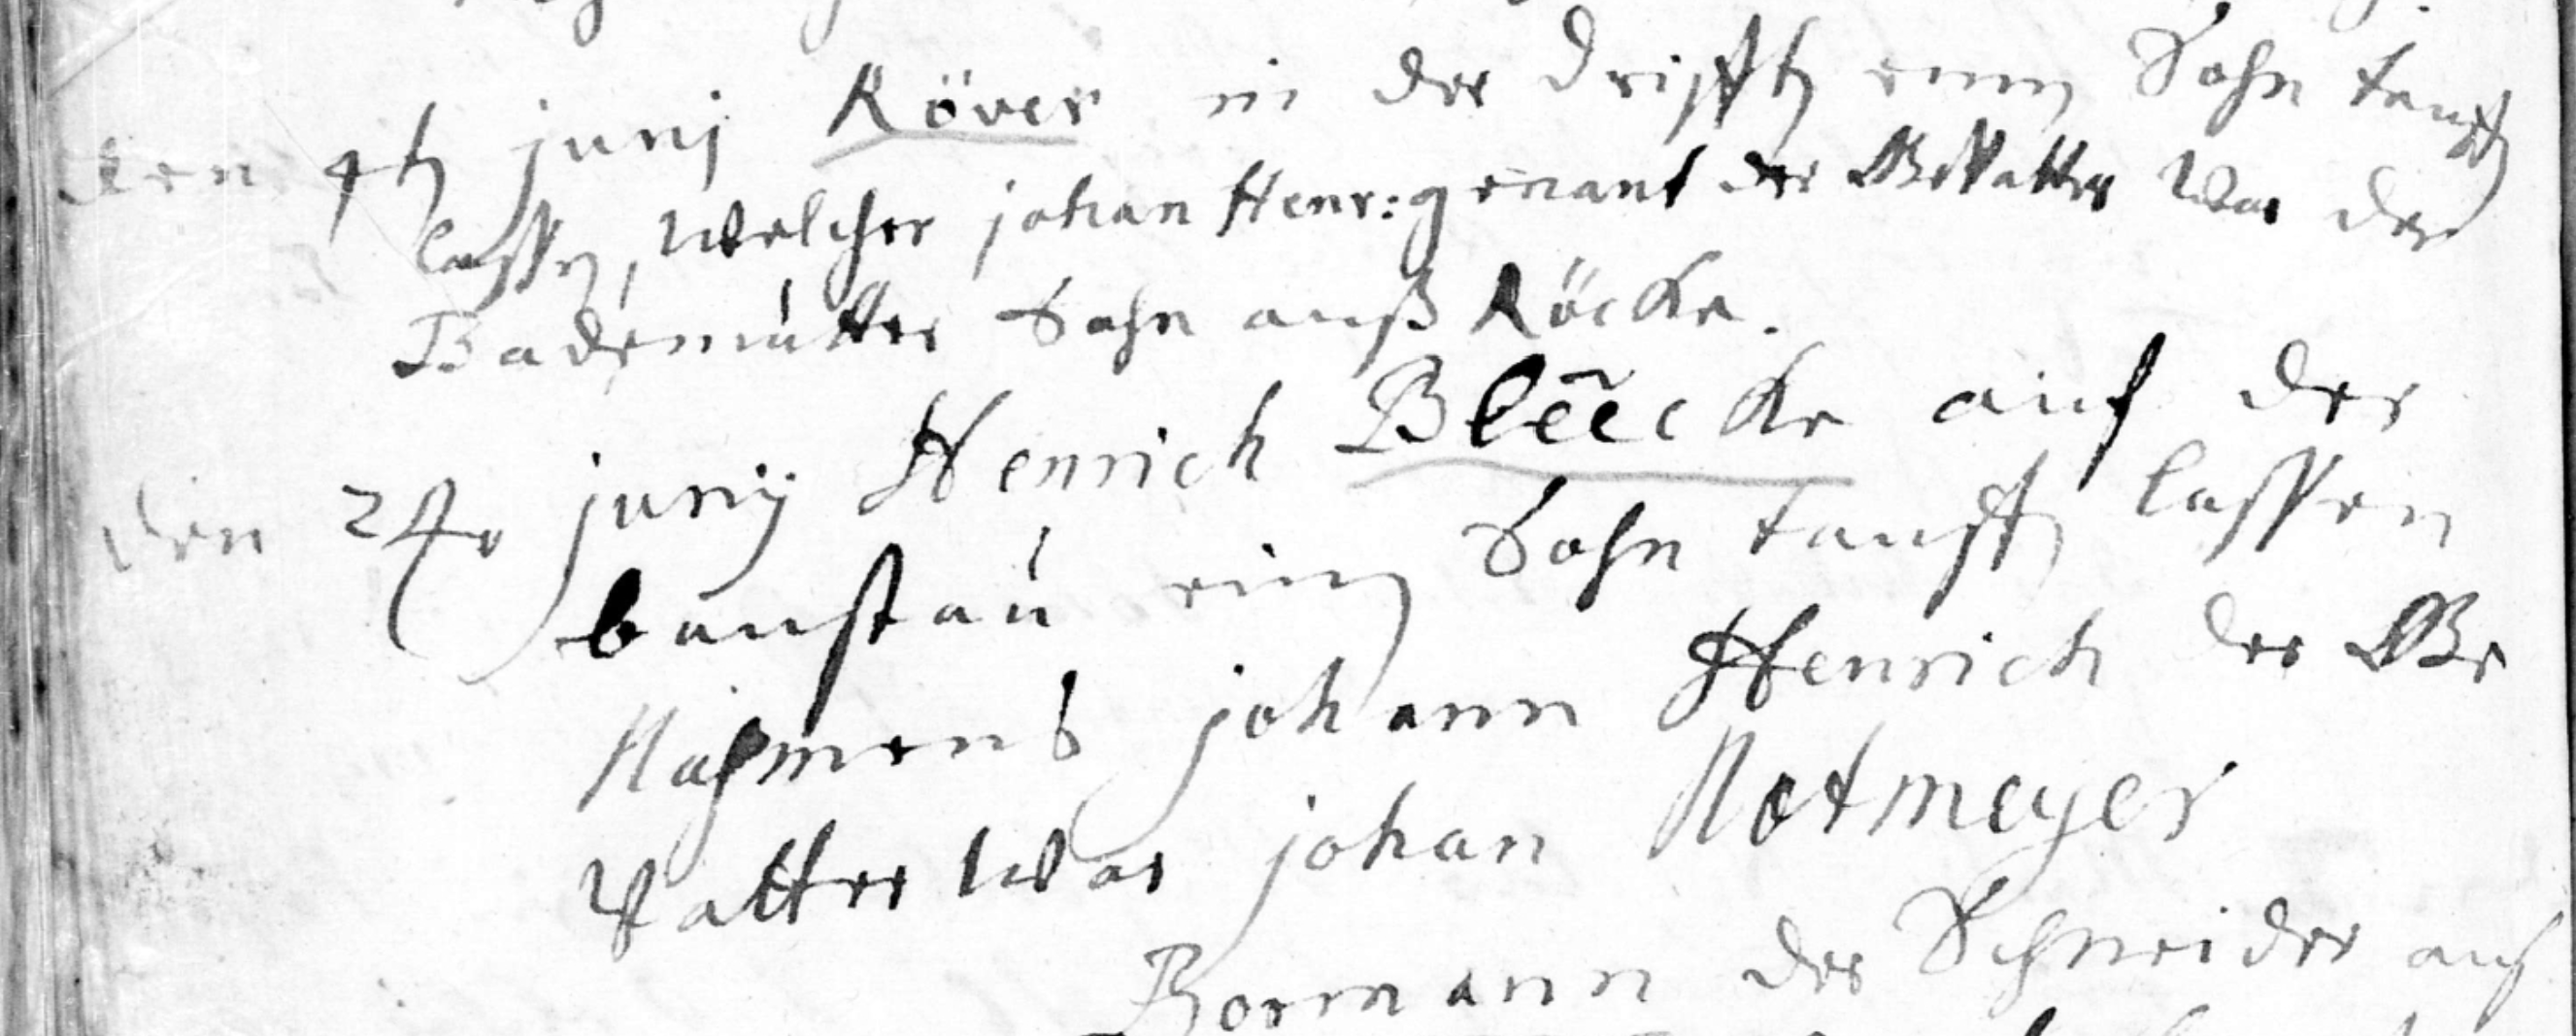 den 4t junij Röver in der Drifft einen Sohn tauffen
lassen, welcher johan Henr: genant der Gevatter war der
Bademutter Sohn auß Röcke.
den 24 junij Henrich Bleecke auf der
baustau einen Sohn tauffen lassen
Nahmens johann Henrich der Ge
Vatter war johan Notmeyer
Bormann der Schneider auf